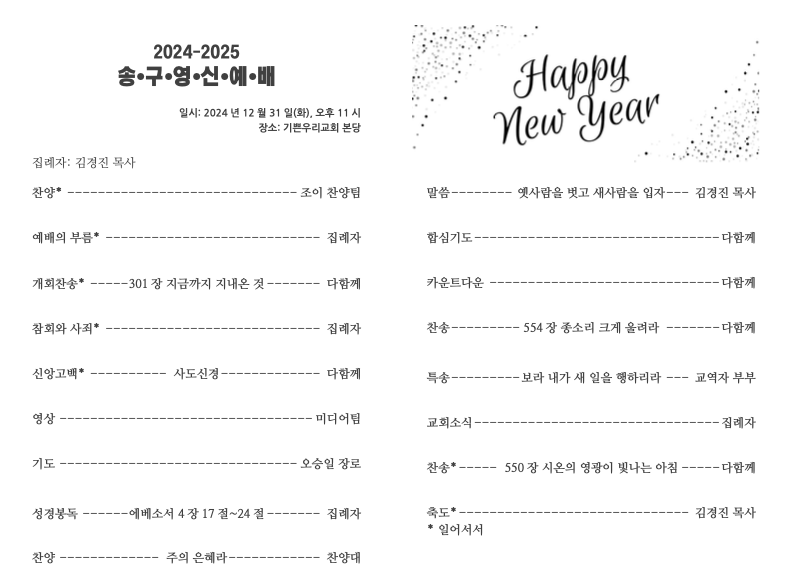 2024-2025
송•구•영•신•예•배
일시: 2024 년 12 월 31 일(화), 오후 11 시
장소: 기쁜우리교회 본당
집례자: 김경진 목사
찬양* ------------------------------- 조이 찬양팀
예배의 부름* ----------------------------- 집례자
개회찬송* -----301 장 지금까지 지내온 것 ------- 다함께
참회와 사죄* ----------------------------- 집례자
신앙고백* ---------- 사도신경------------- 다함께
영상 ---------------------------------- 미디어팀
기도 -------------------------------- 오승일 장로
성경봉독 ------에베소서 4 장 17 절~24 절 ------- 집례자
찬양 ------------- 주의 은혜라------------ 찬양대
Happy
New Year
말씀-------- 옛사람을 벗고 새사람을 입자--- 김경진 목사
합심기도---------------------------------다함께
카운트다운 -------------------------------다함께
찬송--------- 554 장 종소리 크게 울려라 -------다함께
특송---------보라 내가 새 일을 행하리라 --- 교역자 부부
교회소식---------------------------------집례자
찬송*----- 550 장 시온의 영광이 빛나는 아침 -----다함께
축도*------------------------------- 김경진 목사
* 일어서서